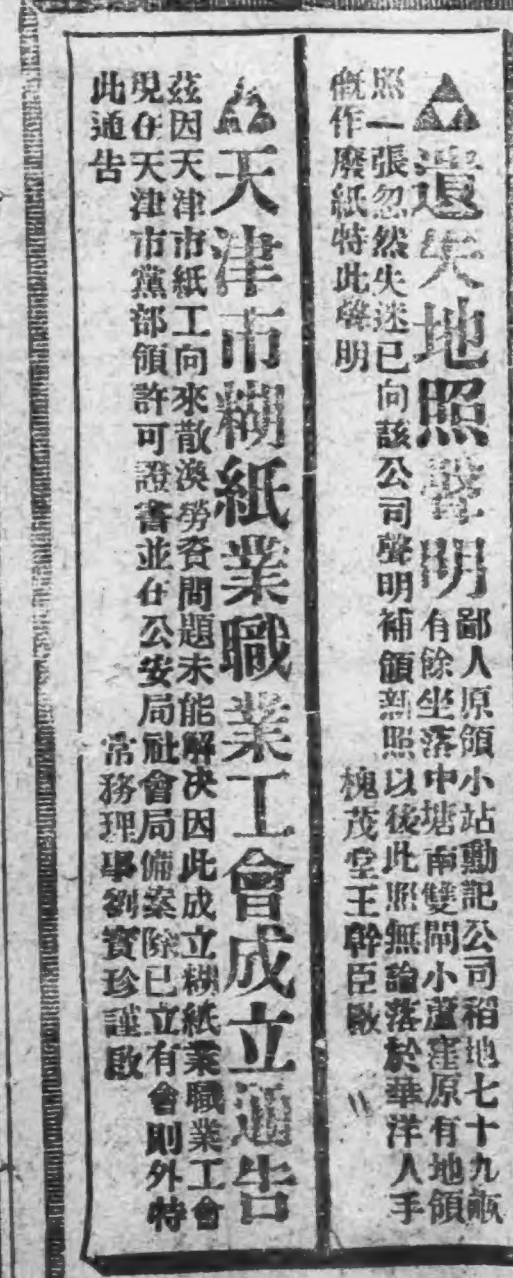 遺失地照聲明
鄙人原領小站勳記公司稻地七十九畝
有餘坐落中塘南雙閘小蘆窪原有地領
照一張忽然失迷已向該公司聲明補領新照以後此照無論落於華洋人手
概作廢紙特此聲明
槐茂堂王幹臣啟
天津市糊紙業職業工會成立通告
茲因天津市紙工向來散渙勞資問題未能解決因此成立糊紙業職業工會
現在天津市黨部領許可證書並在公安局社會局備案除已立有會則外特
此通告
常務理事劉寶珍謹啟